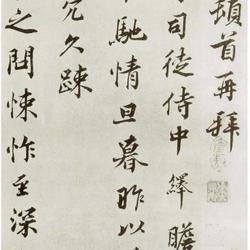 頓首再拜
司徒侍中繹瞻
馳情旦暮昨以
冗久踈
之閏悚怍至深